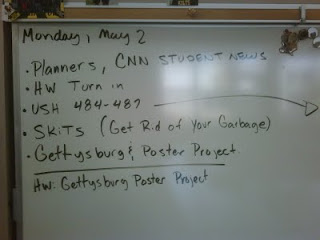 Monday, May 2
• Planners, CNN STUDENT NEWS
• HW Turn in
• USH 484-487
• SKiTs (Get Rid of Your Garbage)
• Gettysburg & Poster Project.
HW: Gettysburg Poster Project